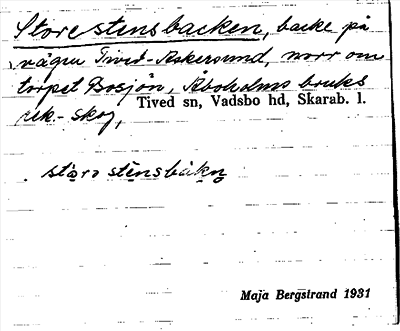 Store stensbacken, backe på
vägen Tived-Askersund, norr om
torpet Bosjön, Åboholms bruks
rek-skog,
Tived sn, Vadsbo hd, Skarab. l.
Maja Bergstrand 1931